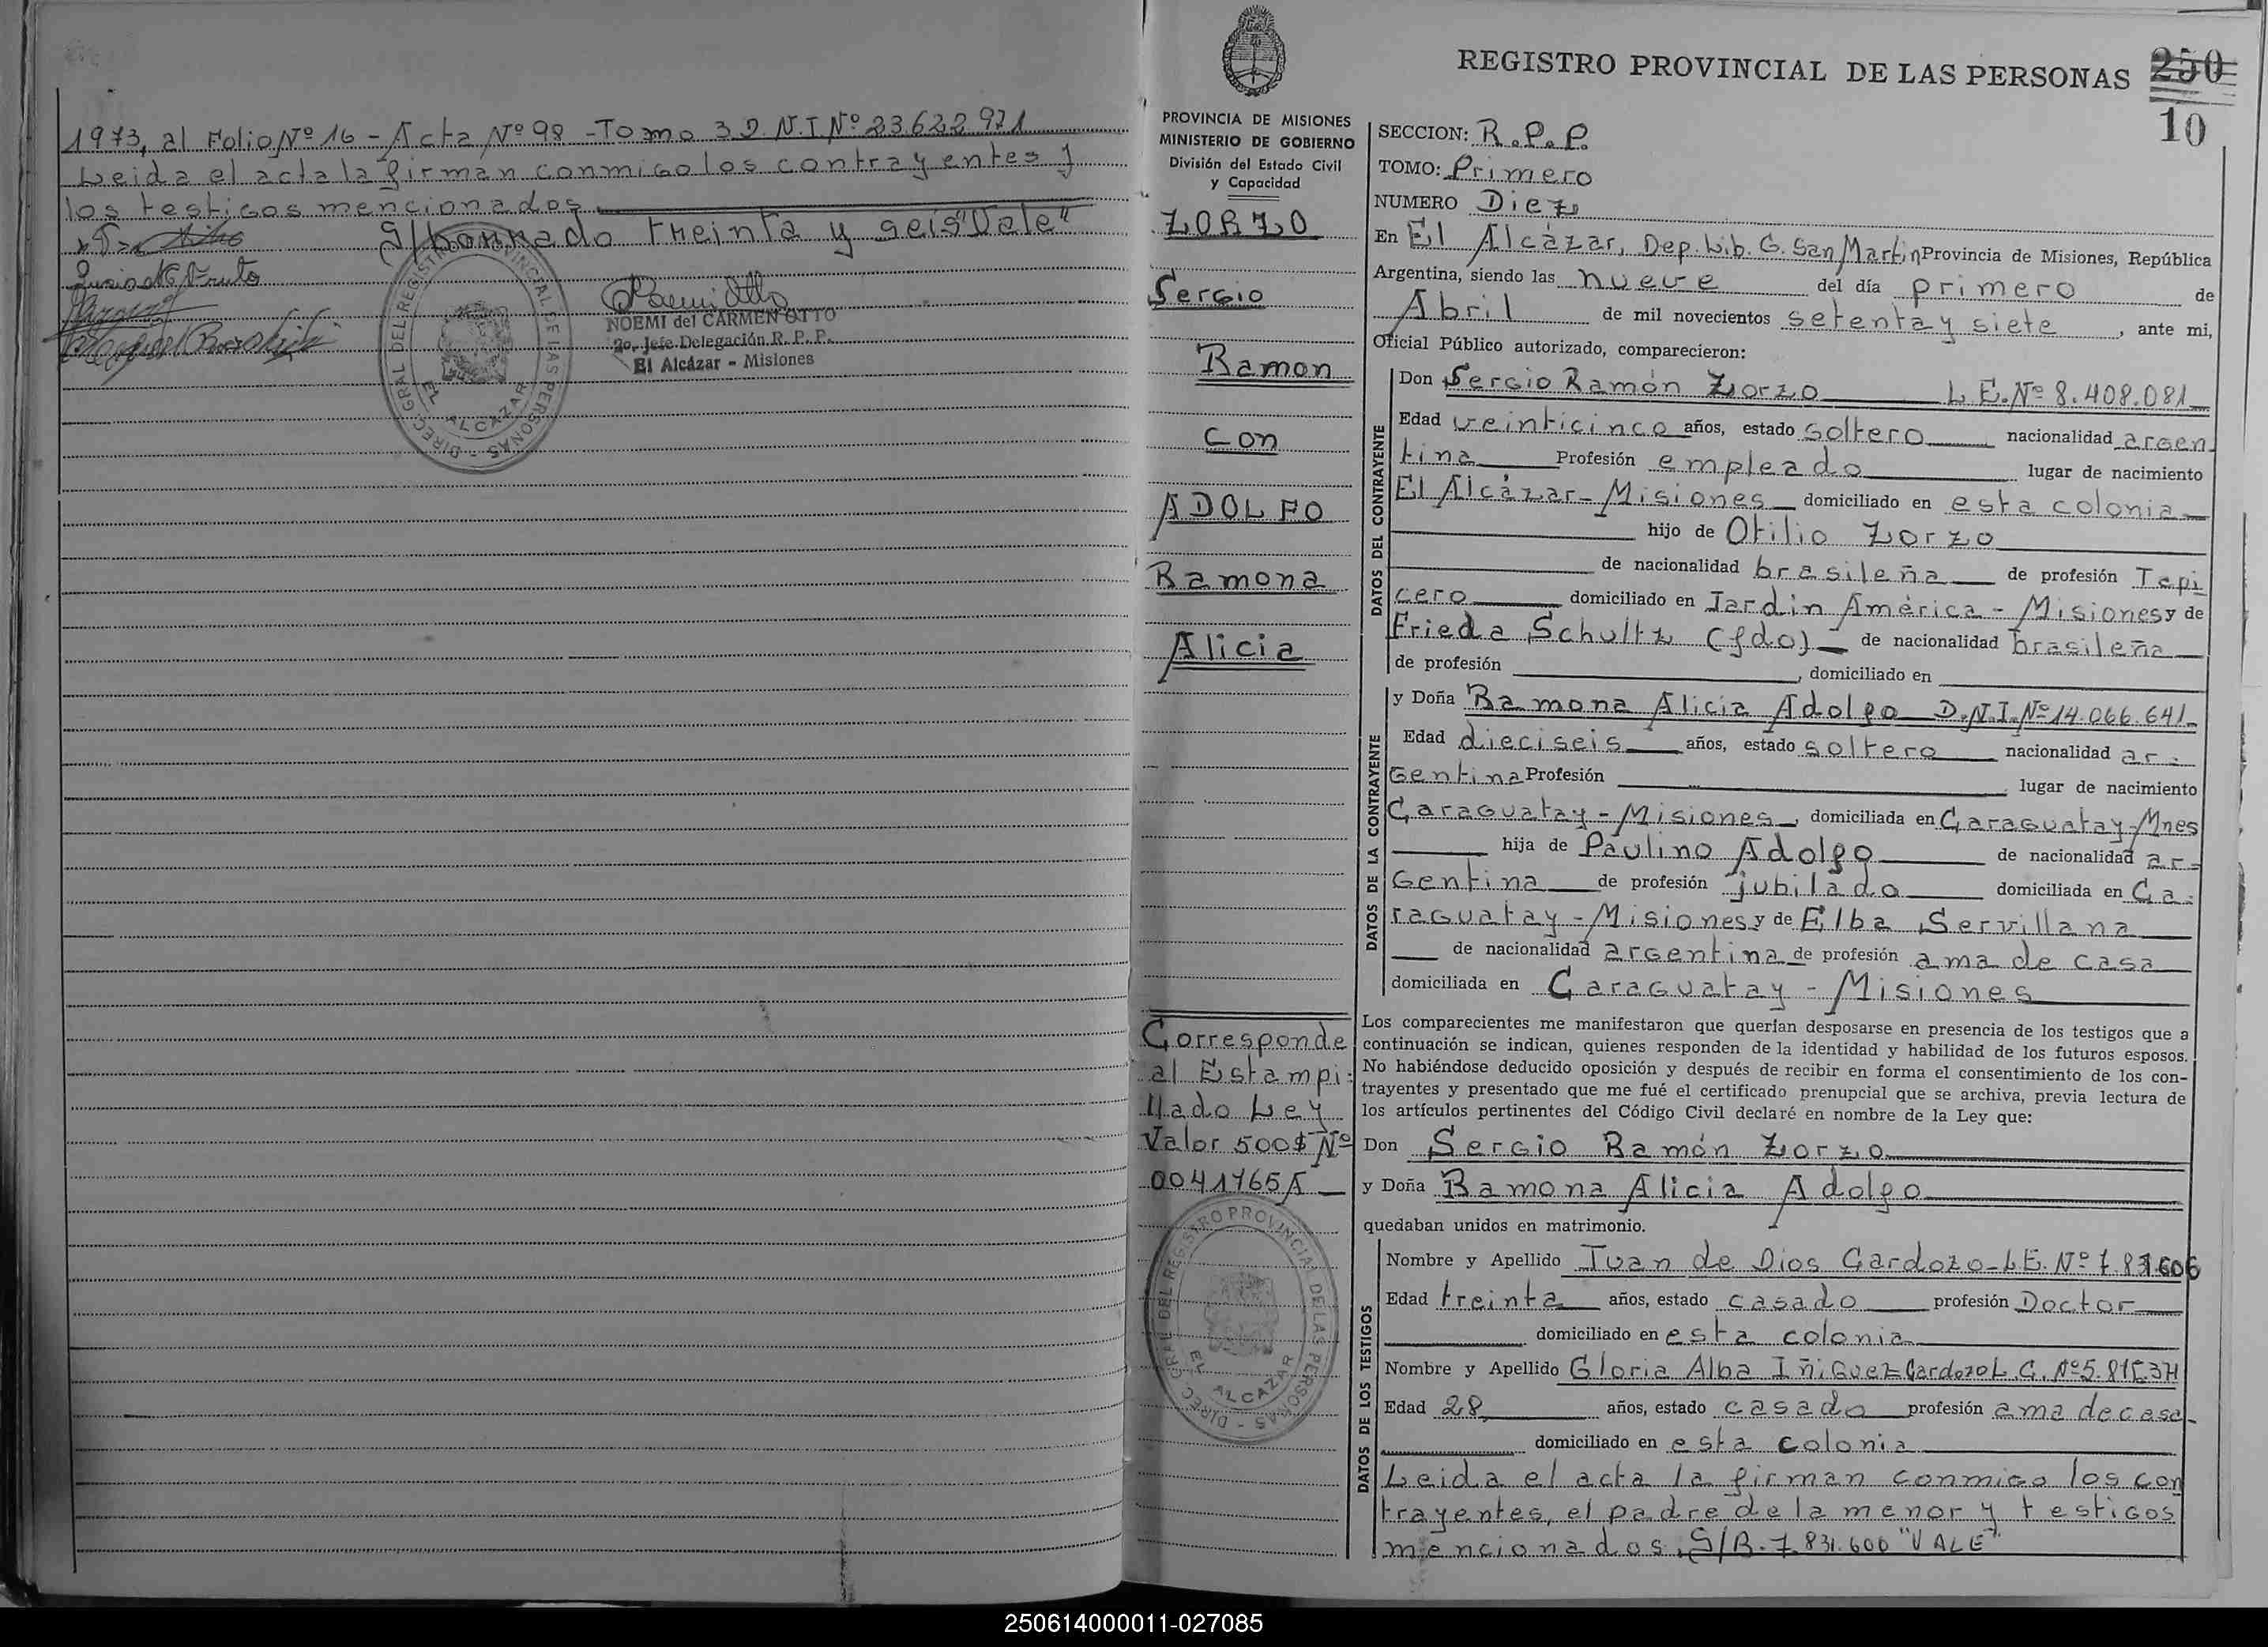 1973, al Folio Nº 16 - Acta Nº 98 - Tomo 3 D.N.I Nº 23.622.971
Leida el acta la firman conmigo los contrayentes y
los testigos mencionados.
S/borrado treinta y seis "Vale"
NOEMI del CARMEN OTTO
2o. Jefe Delegación R. P. P.
El Alcázar - Misiones
DIREC. GRAL DEL REGISTRO PROVINCIAL DE LAS PERSONAS
EL ALCAZAR
REGISTRO PROVINCIAL DE LAS PERSONAS 250
10
PROVINCIA DE MISIONES
MINISTERIO DE GOBIERNO
División del Estado Civil
y Capacidad
ZORZO
Sergio
Ramon
con
ADOLFO
Ramona
Alicia
Corresponde
al Estampi-
llado Ley
Valor 500$ Nº
0041765A
DIREC. GRAL DEL REGISTRO PROVINCIAL DE LAS PERSONAS
EL ALCAZAR
SECCION: R.P.P.
TOMO: Primero
NUMERO Diez
En El Alcázar, Dep. Lib. G. San Martin Provincia de Misiones, República
Argentina, siendo las nueve del día primero de
Abril de mil novecientos setenta y siete, ante mi,
Oficial Público autorizado, comparecieron:
DATOS DEL CONTRAYENTE
Don Sergio Ramón Zorzo L.E. Nº 8.408.081
Edad veinticinco años, estado soltero nacionalidad argen
tina Profesión empleado lugar de nacimiento
El Alcázar - Misiones domiciliado en esta colonia
hijo de Otilio Zorzo
de nacionalidad brasileña de profesión Tapi
cero domiciliado en Jardin América - Misiones y de
Frieda Schultz (fdo) de nacionalidad brasileña
de profesión , domiciliado en
DATOS DE LA CONTRAYENTE
y Doña Ramona Alicia Adolfo D.N.I. Nº 14.066.641
Edad dieciseis años, estado soltero nacionalidad ar-
gentina Profesión lugar de nacimiento
Caraguatay - Misiones, domiciliada en Caraguatay-Mnes
hija de Paulino Adolfo de nacionalidad ar-
gentina de profesión jubilado domiciliada en Ca-
raguatay - Misiones y de Elba Servillana
de nacionalidad argentina de profesión ama de casa
domiciliada en Caraguatay - Misiones
Los comparecientes me manifestaron que querían desposarse en presencia de los testigos que a
continuación se indican, quienes responden de la identidad y habilidad de los futuros esposos.
No habiéndose deducido oposición y después de recibir en forma el consentimiento de los con-
trayentes y presentado que me fué el certificado prenupcial que se archiva, previa lectura de
los artículos pertinentes del Código Civil declaré en nombre de la Ley que:
Don Sergio Ramón Zorzo
y Doña Ramona Alicia Adolfo
quedaban unidos en matrimonio.
DATOS DE LOS TESTIGOS
Nombre y Apellido Juan de Dios Cardozo - L.E. Nº 7.831.606
Edad treinta años, estado casado profesión Doctor
domiciliado en esta colonia
Nombre y Apellido Gloria Alba Iñiguez Cardozo L.C. Nº
Edad 28 años, estado casado profesión ama de casa
domiciliado en esta colonia
Leida el acta la firman conmigo los con
trayentes, el padre de la menor y testigos
mencionados. S/B. 7.831.606 "VALE"
250614000011-027085